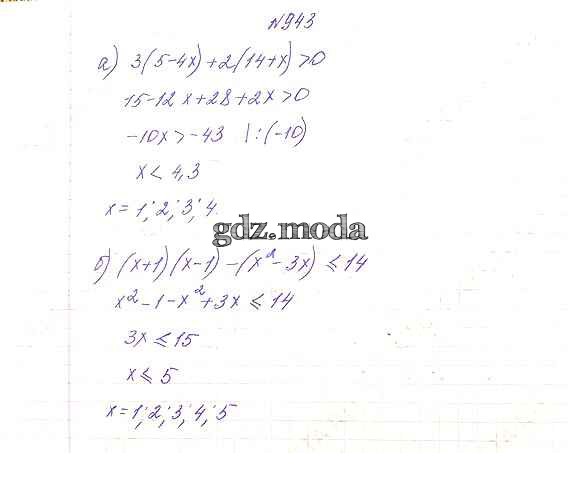 №943
а) 3(5-4x)+2(14+x)>0
15-12x+28+2x>0
-10x>-43 |:(-10)
x<4,3
x=1;2;3;4.
gdz.moda
б) (x+1)(x-1)-(x²-3x)≤14
x²-1-x²+3x≤14
3x≤15
x≤5
x=1;2;3;4;5